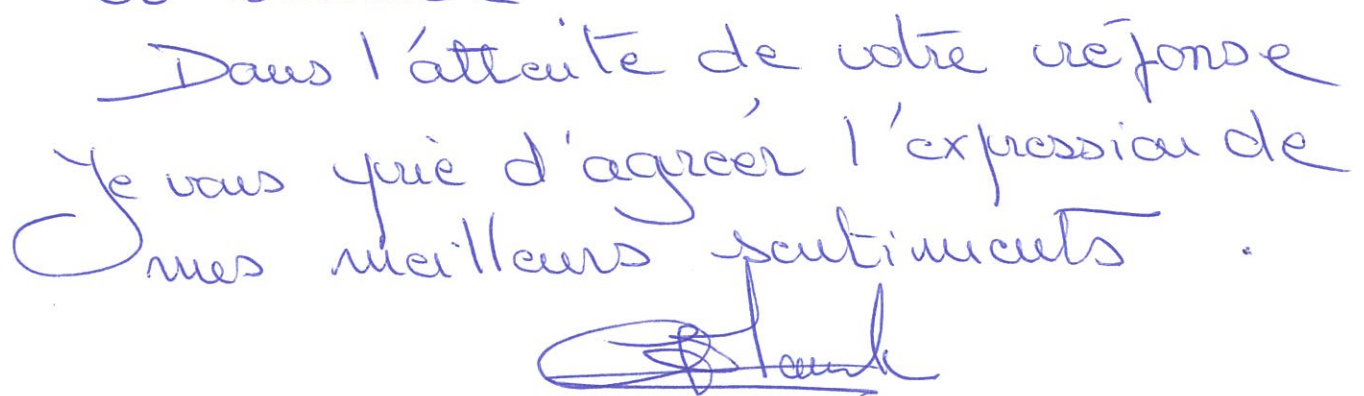 Dans l'attente de votre réponse
Je vous prie d'agréer l'expression de
mes meilleurs sentiments.